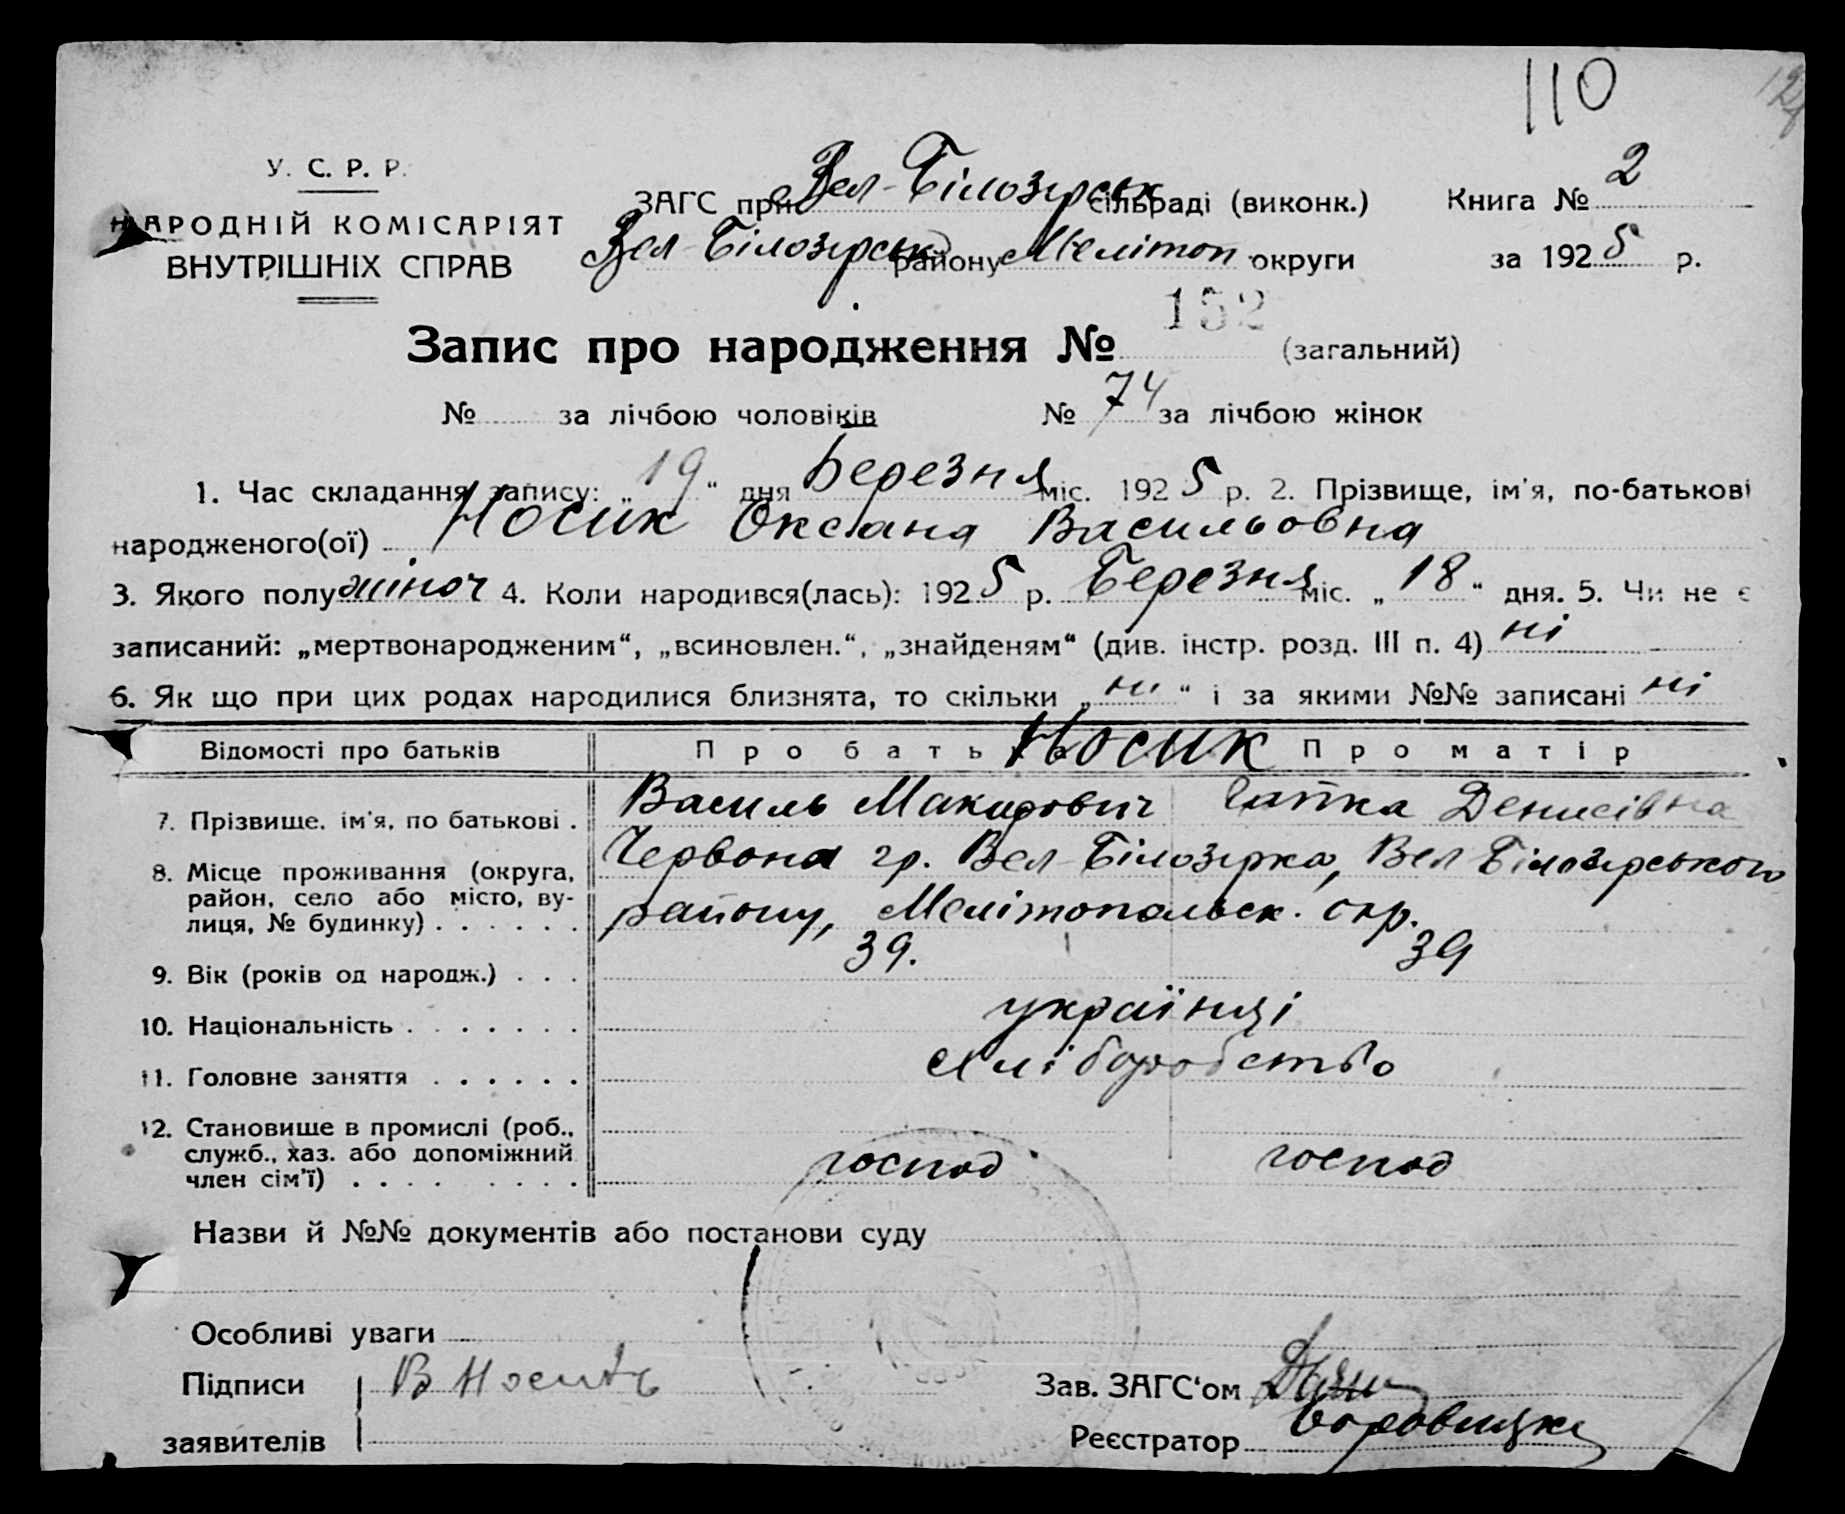 110
У. С. Р. Р.
НАРОДНІЙ КОМІСАРІЯТ
ВНУТРІШНІХ СПРАВ
ЗАГС при Вел-Білозірськ сільраді (виконк.)
Вел-Білозірськ району Мелітоп. округи
Книга № 2
за 1925 р.
Запис про народження № 152 (загальний)
№ за лічбою чоловіків № 74 за лічбою жінок
1. Час складання запису: „19“ дня березня міс. 1925 р. 2. Прізвище, ім'я, по-батькові
народженого(ої) Носик Оксана Васильовна
3. Якого полу жіноч 4. Коли народився(лась): 1925 р. Березня міс. „18“ дня. 5. Чи не є
записаний: „мертвонародженим“, „всиновлен.“, „знайденям“ (див. інстр. розд. III п. 4) ні
6. Як що при цих родах народилися близнята, то скільки „ні“ і за якими №№ записані ні
Відомості про батьків Про батька Носик Про матір
7. Прізвище, ім'я, по батькові . Василь Макарович Гапка Денисівна
8. Місце проживання (округа, район, село або місто, вулиця, № будинку) . . . . . . Червона гр. Вел-Білозірка, Вел Білозірського
району, Мелітопольск. окр.
9. Вік (років од народж.) . . . 39. 39
10. Національність . . . . . . . українці
11. Головне заняття . . . . . . хліборобство
12. Становище в промислі (роб., служб., хаз. або допоміжний член сім'ї) . . . . . . . . . господ господ
Назви й №№ документів або постанови суду
Особливі уваги
Підписи заявителів В Носить
Зав. ЗАГС'ом
Реєстратор